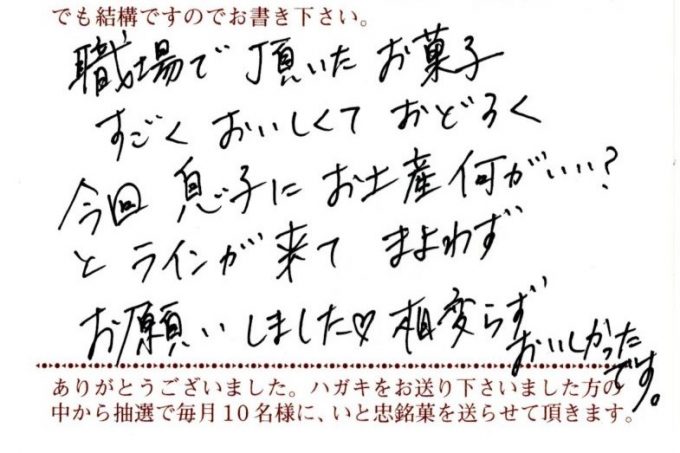 でも結構ですのでお書き下さい。
職場で頂いたお菓子
すごくおいしくておどろく
今回息子にお土産何がいい?
とラインが来てまよわず
お願いしました♡相変らず
おいしかった
です。
ありがとうございました。ハガキをお送り下さいました方の
中から抽選で毎月10名様に、いと忠銘菓を送らせて頂きます。